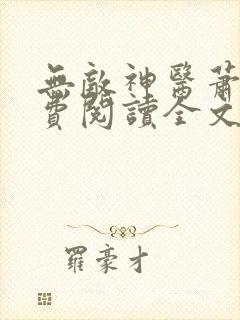 無敵神醫蕭
費閱讀全文
羅豪才